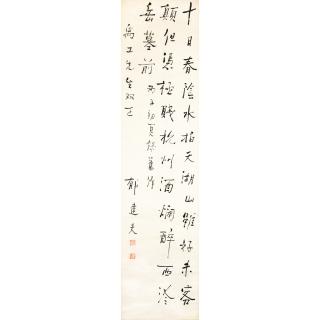 十日春陰水拍天湖山雖好未容
顛但憑極賤杭州酒爛醉西泠
岳墓前 丙子初夏錄舊作
先生双正
郁達夫